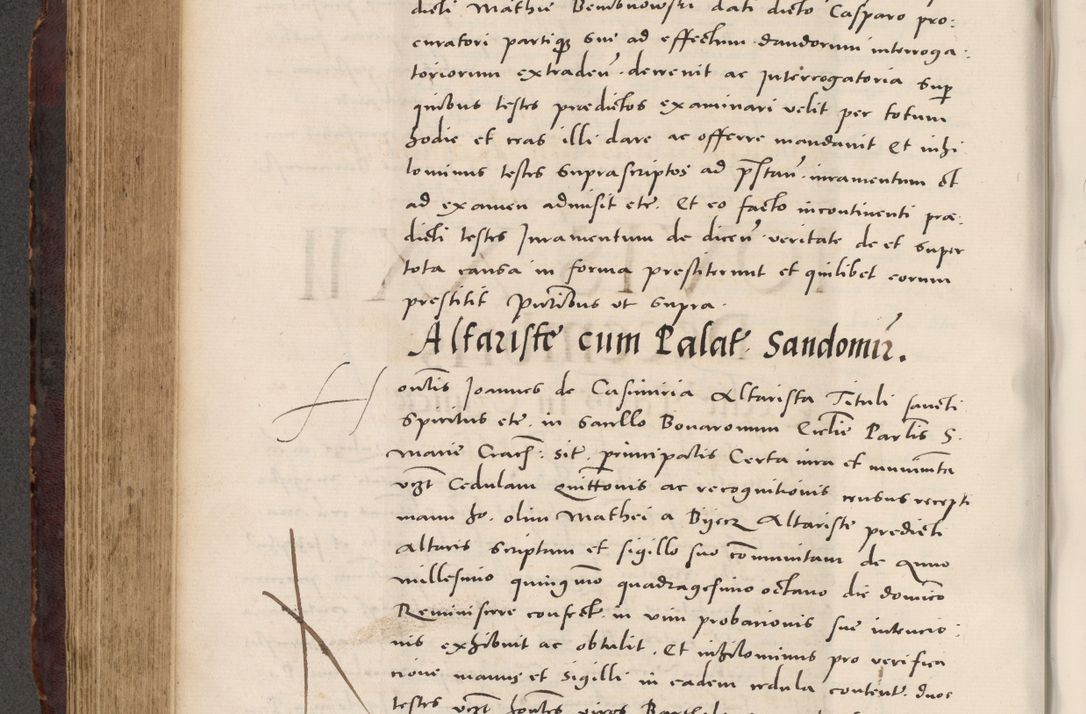 dicti Mathie Bembnowski dati dicto Casparo pro:
curatori partiq̃ sue ad effectum dandorum interroga:
toriorum extraden̄ decrevit ac Interrogatoria sup̄
quibus testes prædictos examinari velit per totum
hodie et cras illi dare ac offerre mandavit Et nihi
lominus testes suprascriptos ad p̄stan̄ iuramentum et
ad examen admisit etc. Et eo facto incontinenti præ:
dicti testes Iuramentum de dicen̄ veritate de et super
tota causa in forma prestiterunt et quilibet eorum
prestitit p̄ntibus ut supra.
Altariste cum Palat. Sandomir̄.
Hon̄tis Joannes de Casimiria Altarista Tituli sancti
Spiritus etc. in sacello Bonaronum Ecclie Par̄lis S.
Marie Crac̄: sit. principalis Certa iura et munim̄ta
vz̄t Cedulam Quitt̄onis ac recognitionis census recepti
manu ho. olim Mathei a Byecz Altariste predicti
altaris scriptum et sigillo suo com̄munitam de Anno
millesimo quingmo quadragesimo octavo die dominico
Reminiscere confect. in vim probacionis sue intencio:
nis exhibuit ac obtulit. Et nihilominus pro verifica
cione manus et sigilli in eadem cedula content. duos
testes vz̄t hon̄tes viros